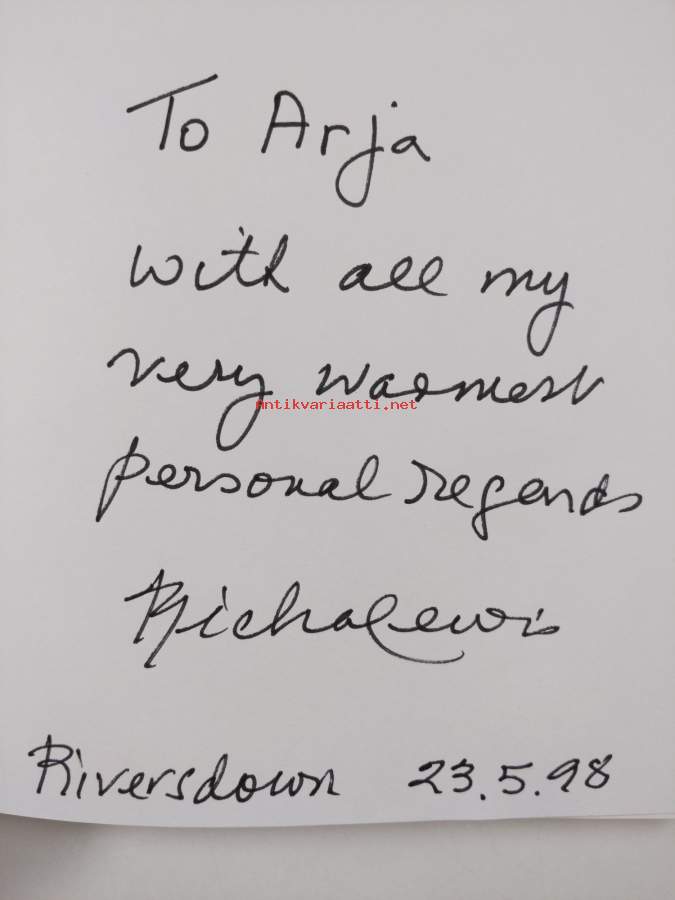 To Arja
with all my
very warmest
antikvariaatti.net
personal regards
Richa Lewis
Riversdown 23.5.98